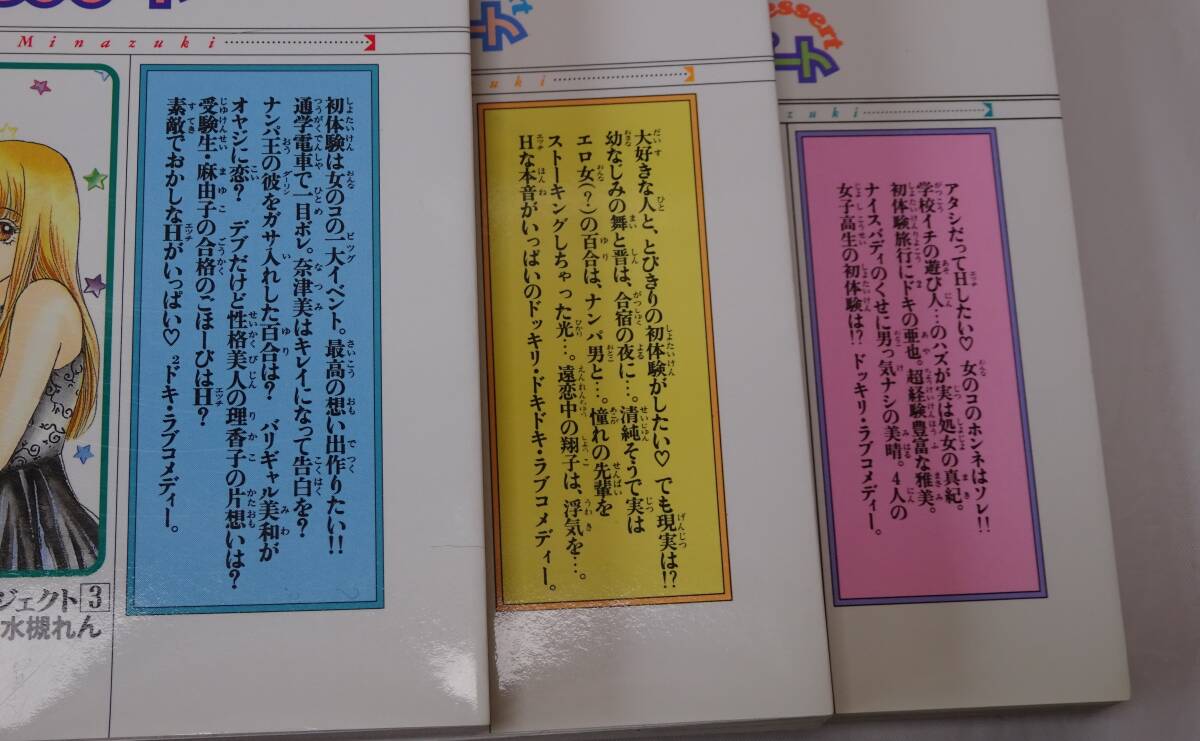 Minazuki
初体験は女のコの一大イベント。最高の想い出作りたい!!
通学電車で一目ボレ。奈津美はキレイになって告白を?
ナンパ王の彼をガサ入れした百合は? バリギャル美和が
オヤジに恋? デブだけど性格美人の理香子の片想いは?
受験生・麻由子の合格のごほーびはH?
素敵でおかしなHがいっぱい♡ 2ドキ・ラブコメディー。
ジェクト3
水槻れん
uki
大好きな人と、とびきりの初体験がしたい♡ でも現実は!?
幼なじみの舞と晋は、合宿の夜に…。清純そうで実は
エロ女(?)の百合は、ナンパ男と…。憧れの先輩を
ストーキングしちゃった光…。遠恋中の翔子は、浮気を…。
Hな本音がいっぱいのドッキリ・ドキドキ・ラブコメディー。
essert
zuki
アタシだってHしたい♡ 女のコのホンネはソレ!!
学校イチの遊び人…のハズが実は処女の真紀。
初体験旅行に2ドキの亜也。超経験豊富な雅美。
ナイスバディのくせに男っ気ナシの美晴。4人の
女子高生の初体験は!? ドッキリ・ラブコメディー。